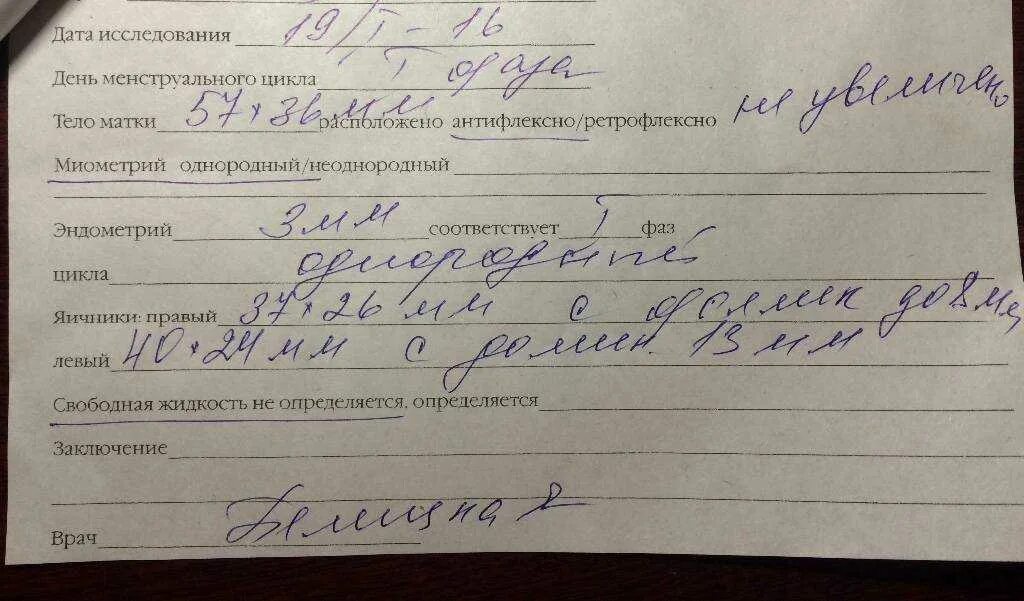 Дата исследования 19/I-16
День менструального цикла I фаза
Тело матки 57×36 мм расположено антифлексно/ретрофлексно не увеличено
Миометрий однородный/неоднородный
Эндометрий 3 мм соответствует I фаз
цикла однородный
Яичники: правый 37×26 мм с фоллик до 8 мм
левый 40×24 мм с домин. 13 мм
Свободная жидкость не определяется, определяется
Заключение
Врач